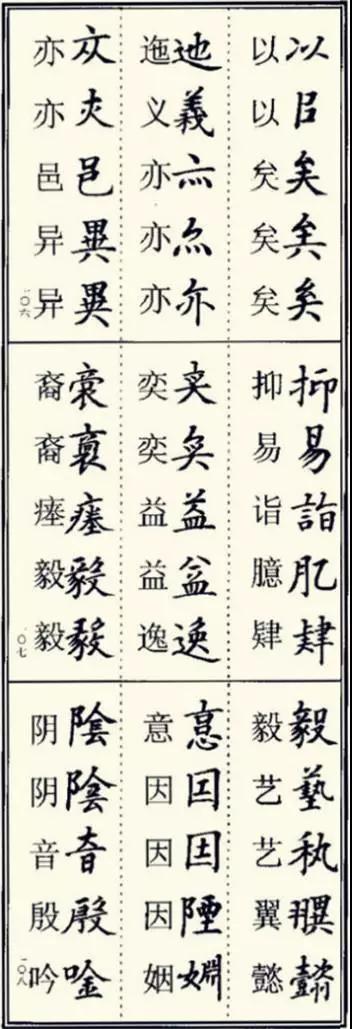 以㠯矣矣矣
以以矣矣矣
迆義亦亦亦
迤义亦亦亦
亦亦邑異異
亦亦邑异异
一〇六
抑易詣肊肄
抑易诣臆肄
奕奕益益逸
奕奕益益逸
裔裔瘞毅毅
裔裔瘗毅毅
一〇七
毅藝秇翼懿
毅艺艺翼懿
意因因陻婣
意因因因姻
陰陰音殷唫
阴阴音殷吟
一〇八